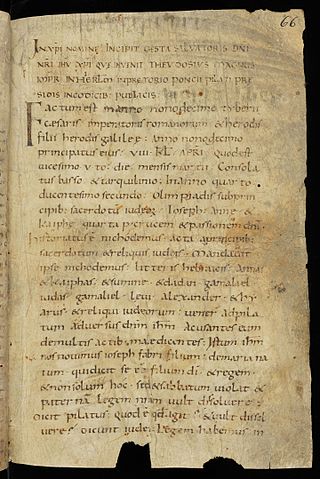 66
IN XPI NOMINE INCIPIT GESTA SALVATORIS DNI
NRI IHU XPI QUE INVENIT THEVDOSIVS MAGNVS
IMPR IN HIERLM IN PRETORIO PONCII PILATI PRE
SIDIS IN CODICIB PUBLICIS
Factum est in anno nonodecimo tyberii
cæsaris imperatoris romanorum & herodis
filii herodis galileę. Anno nonodecimo
principatus eius. VIII KL APRL quod est
vicesimo v to die mensis martii. Consola
tus basso & tarquilino. In anno quarto
ducentesimo secundo. Olimpiadis sub prin
cipib; sacerdotũ iudeoꝝ Ioseph. Anne &
kaiphe
historiatus ẽ nichodemus acta a principib;
sacerdotum & reliquis iudeis. Mandavit
ipse nichodemus litteris hebraicis. Annas
& kaiphas & summe & dadan gamaliel
iudas gamaliel levi alexander & hy
arus & reliqui iudeorum. Vener ad pila
tum adversus dnm ihm accusantes eum
de multis actib; mae dicentes. Istum ihm
nos novimus ioseph fabri filium. de maria na
tum qui dicit se eẽ filium di & regem.
& non solum hoc. sed & sabbatum violat &
paternã legem nram vult dissolvere.
Dicit pilatus. quod ẽ qd agit & vult dissol
vere. Dicunt iudei. Legem habemus in